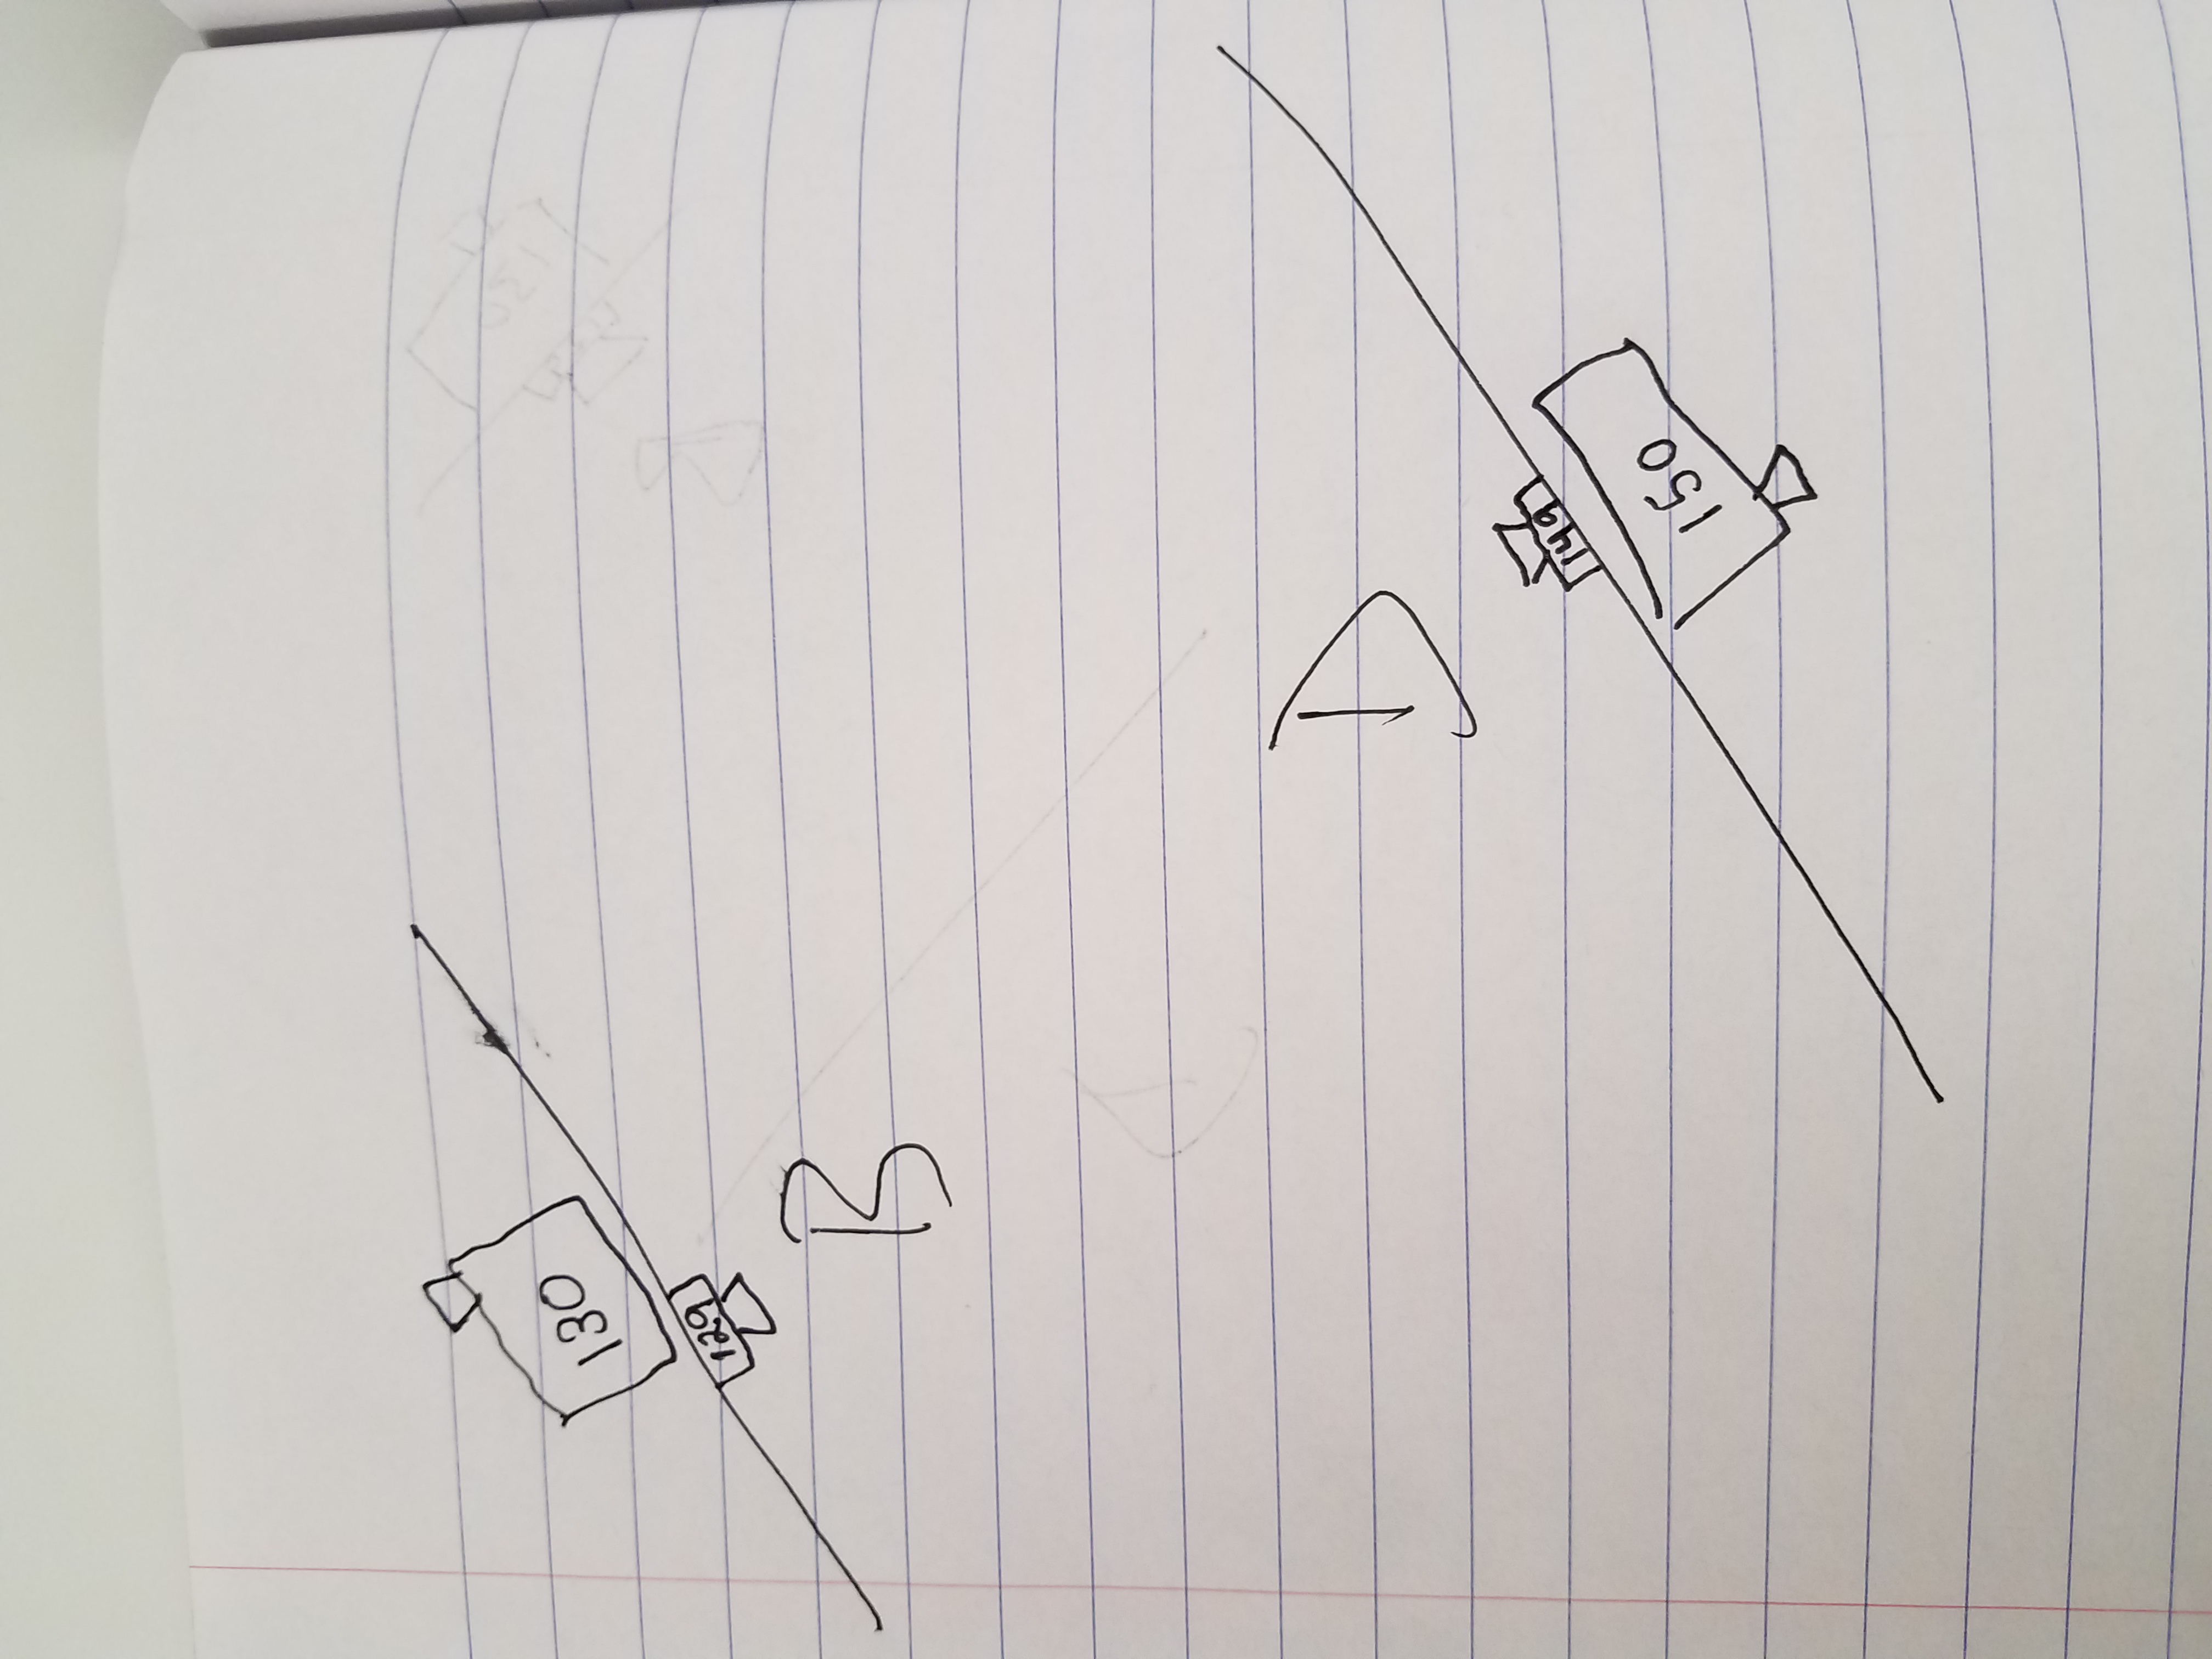 130
129
B
D
149
150